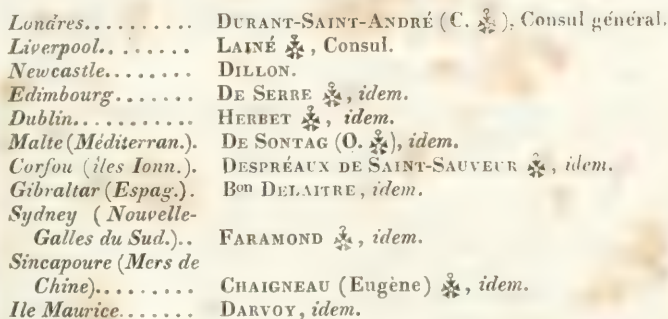 Londres.......... DURANT-SAINT-ANDRÉ (C. ✠), Consul général.
Liverpool........ LAINÉ ✠, Consul.
Newcastle........ DILLON.
Edimbourg....... DE SERRE ✠, idem.
Dublin.......... HERBET ✠, idem.
Malte (Méditerran.). DE SONTAG (O. ✠), idem.
Corfou (îles Ionn.). DESPRÉAUX DE SAINT-SAUVEUR ✠, idem.
Gibraltar (Espag.). Bon DELAITRE, idem.
Sydney (Nouvelle-
Galles du Sud.).. FARAMOND ✠, idem.
Sincapoure (Mers de
Chine)......... CHAIGNEAU (Eugène) ✠, idem.
Ile Maurice....... DARVOY, idem.